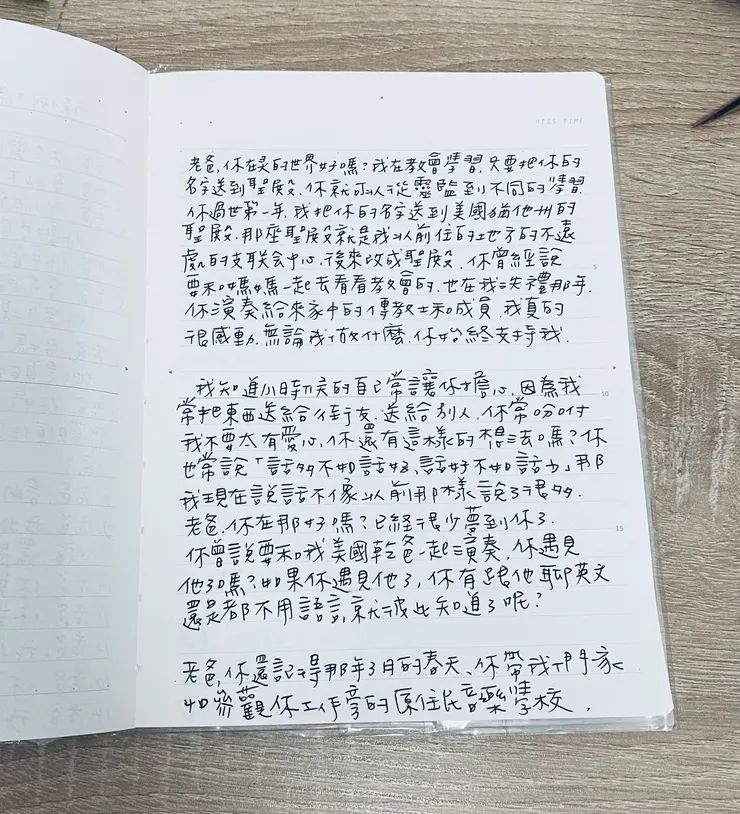 MISS TIME
老爸,你在灵的世界好嗎?我在教會學習,只要把你的
名字送到聖殿,你就可以從靈監到不同的學習
你過世第一年,我把你的名字送到美國猶他州的
聖殿.那座聖殿就是我以前住的地方的不遠
處的支联会中心.後來改成聖殿.你曾經說
要和媽媽一起去看看教會的.也在我洗禮那年.
你演奏給來家中的傳教士和成員.我真的
很感動.無論我做什麼.你始終支持我.
我知道小時幼灵的自己常讓你擔心.因為我
常把東西送給 送給別人.你常吩咐
我不要太有愛心.你還有這樣的想法嗎?你
也常說「話多不如話好、話好不如話少」那
我現在說話不像以前那樣說了很多.
老爸.你在那好嗎?已經很少夢到你了.
你曾說要和我美國乾爸一起演奏.你遇見
他了嗎?如果你遇見他了,你有跟他聊英文
還是都不用語言,就彼此知道了呢?
老爸,你還記得那年3月的春天、你帶我們家
如參觀你工作旁的原住民音樂學校.
5
10
15